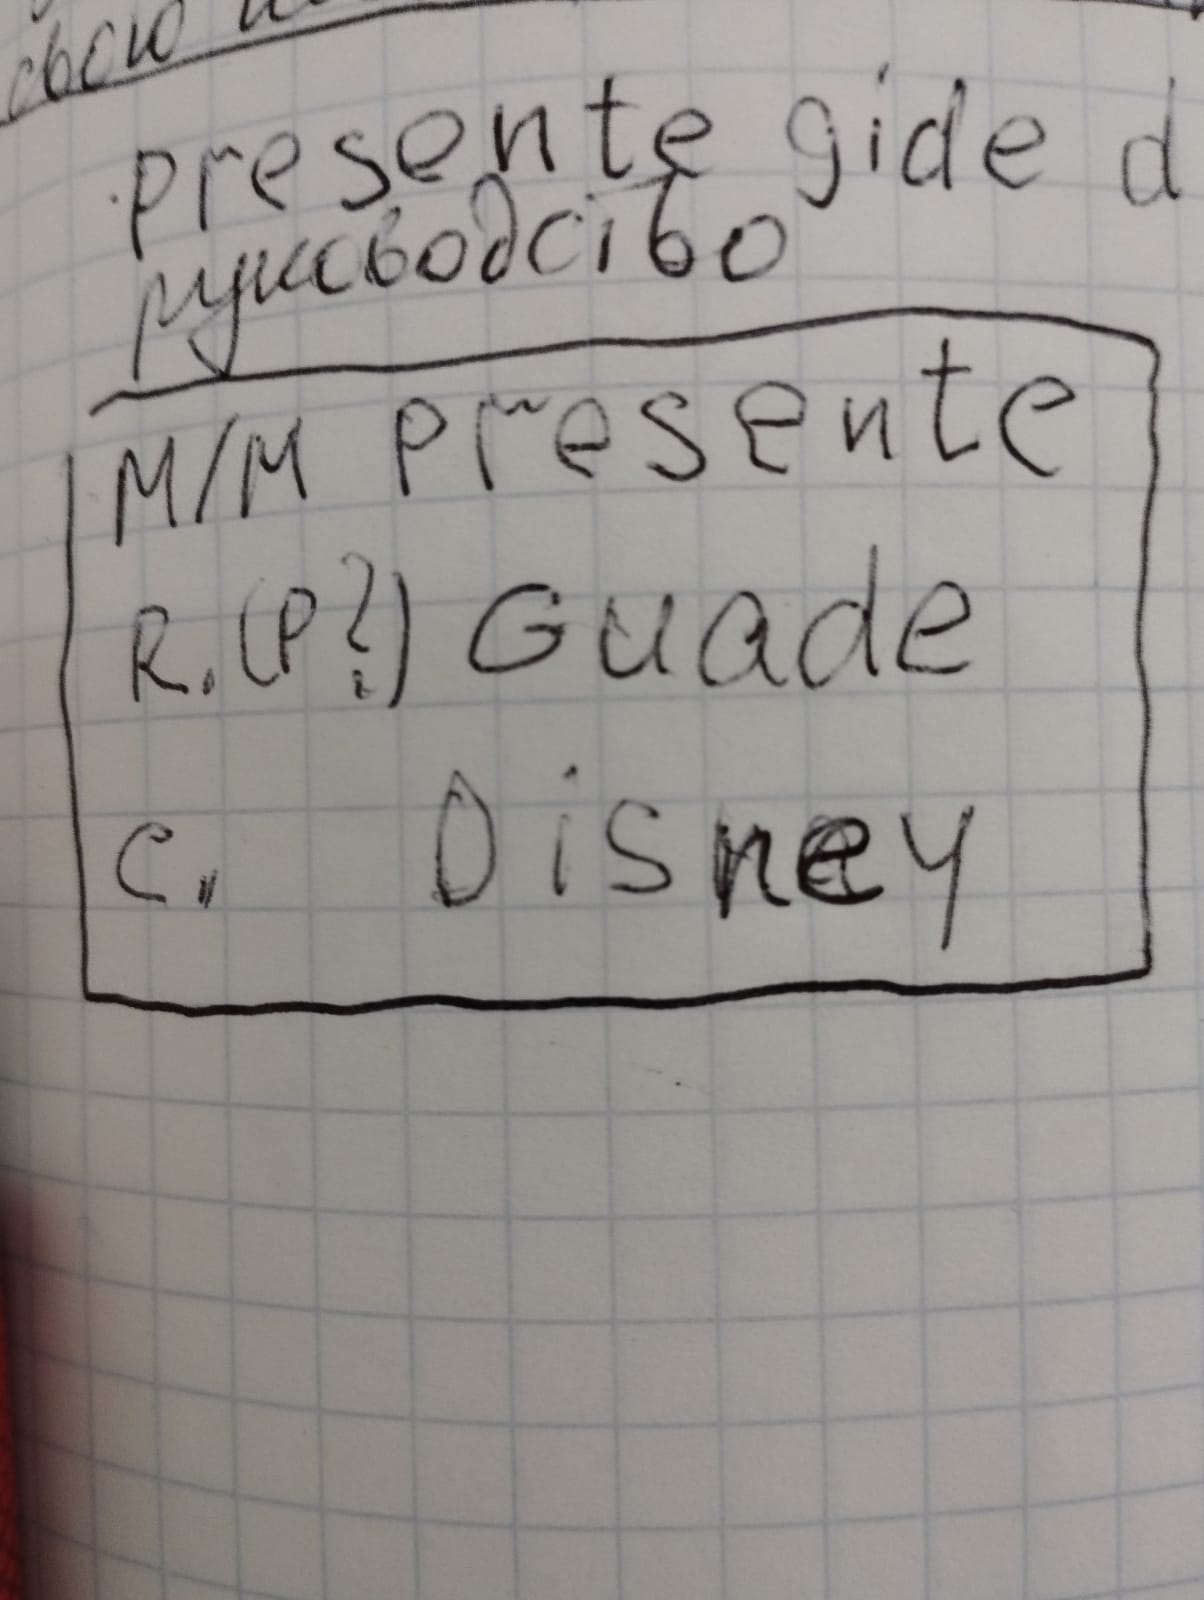 свою
presente gide d
руководство
M/M Presente
R. (P?) Guade
C. Disney